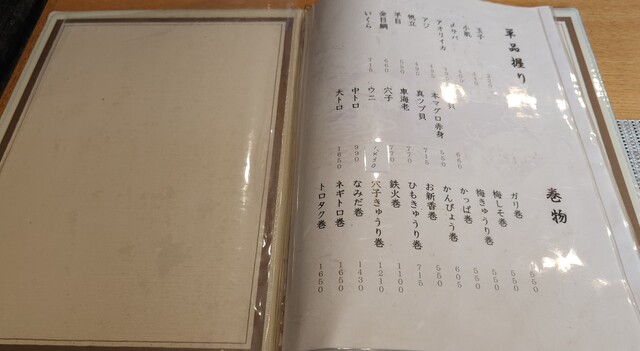 単品握り
玉子
小肌
〆サバ
アオリイカ
アジ
帆立
平目 550
金目鯛 660
いくら 715
貝 660
本マグロ赤身 550
真ツブ貝 715
車海老 770
穴子 770
ウニ
中トロ 990
大トロ 1650
巻物
ガリ巻 550
梅しそ巻 550
梅きゅうり巻 550
かっぱ巻 550
かんぴょう巻 605
お新香巻 550
ひもきゅうり巻 715
鉄火巻 1100
穴子きゅうり巻 1210
なみだ巻 1430
ネギトロ巻 1650
トロタク巻 1650